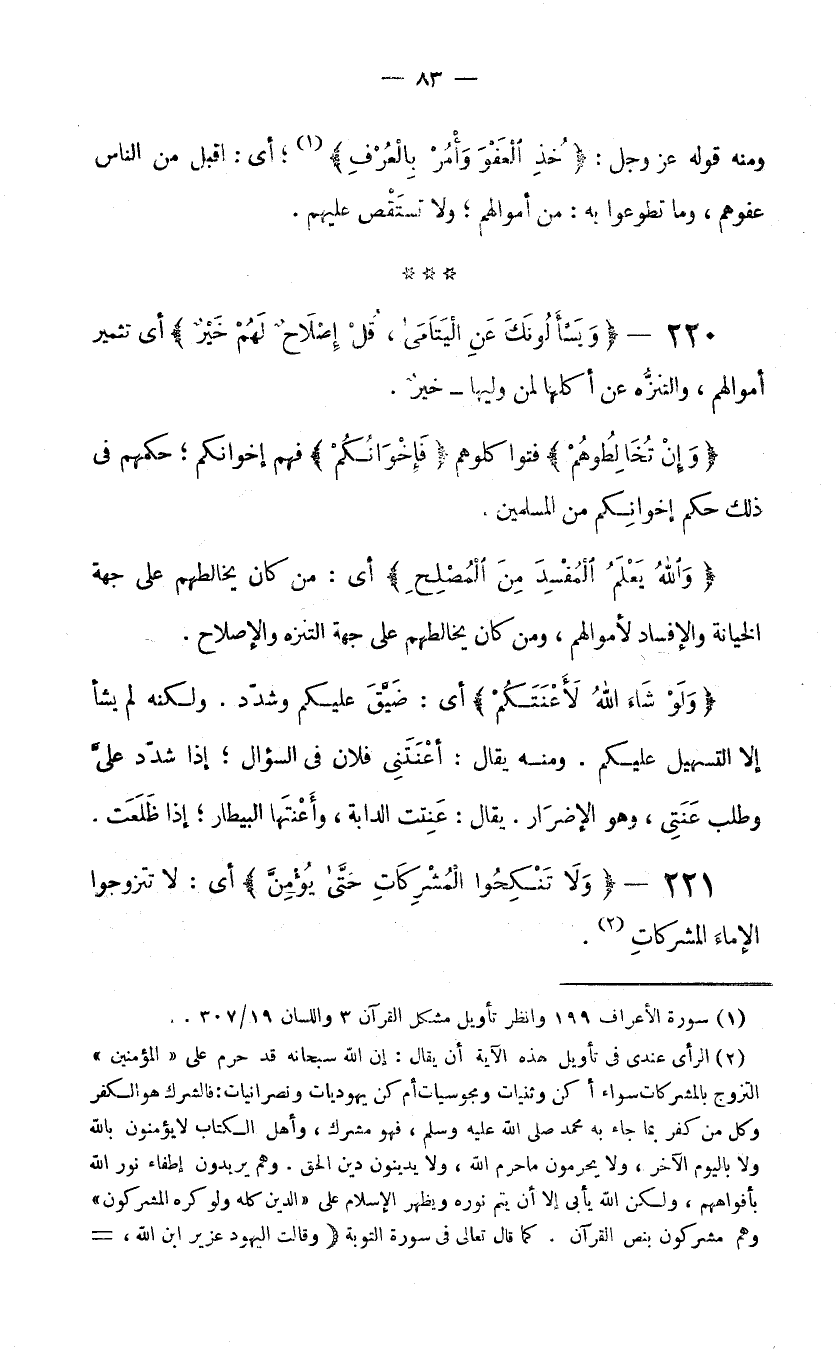 — ٨٣ —
ومنه قوله عز وجل : ﴿ خُذِ ٱلْعَفْوَ وَأْمُرْ بِالْعُرْفِ ﴾ (١) ؛ أى : اقبل من الناس
عفوهم ، وما تطوعوا به : من أموالهم ؛ ولا تستَقْص عليهم .
* * *
٢٢٠ — ﴿ وَيَسْأَلُونَكَ عَنِ الْيَتَامَىٰ ، قُلْ إِصْلَاحٌ لَهُمْ خَيْرٌ ﴾ أى تثمير
أموالهم ، والتنزُّه عن أكلها لمن وليها – خيرٌ .
﴿ وَإِنْ تُخَالِطُوهُمْ ﴾ فتواكلوهم ﴿ فَإِخْوَانُكُمْ ﴾ فهم إخوانكم ؛ حكمهم فى
ذلك حكم إخوانِكم من المسلمين .
﴿ وَٱللهُ يَعْلَمُ ٱلْمُفْسِدَ مِنَ ٱلْمُصْلِحِ ﴾ أى : من كان يخالطهم على جهة
الخيانة والإفساد لأموالهم ، ومن كان يخالطهم على جهة التنزه والإصلاح .
﴿ وَلَوْ شَاءَ اللهُ لَأَعْنَتَكُمْ ﴾ أى : ضَيَّقَ عليكم وشدّد . ولكنه لم يشأ
إلا التسهيل عليكم . ومنه يقال : أعْنَتَنِى فلان فى السؤال ؛ إذا شدّد علىَّ
وطلب عَنَتِى ، وهو الإضرَار . يقال : عَنِتت الدابة ، وأَعْنَتَها البيطار ؛ إذا ظَلَعَت .
٢٢١ — ﴿ وَلَا تَنْكِحُوا الْمُشْرِكَاتِ حَتَّىٰ يُؤْمِنَّ ﴾ أى : لا تتزوجوا
الإماءَ المشركاتِ (٢) .
(١) سورة الأعراف ١٩٩ وانظر تأويل مشكل القرآن ٣ واللسان ٣٠٧/١٩ . .
(٢) الرأى عندى فى تأويل هذه الآية أن يقال : إن الله سبحانه قد حرم على « المؤمنين »
التزوج بالمشركات سواء أ كن وثنيات ومجوسيات أم كن يهوديات ونصرانيات : فالشرك هو الكفر
وكل من كفر بما جاء به محمد صلى الله عليه وسلم ، فهو مشرك ، وأهل الكتاب لا يؤمنون بالله
ولا باليوم الآخر ، ولا يحرمون ماحرم الله ، ولا يدينون دين الحق . وهم يريدون إطفاء نور الله
بأفواههم ، ولكن الله يأبى إلا أن يتم نوره ويظهر الإسلام على «الدين كله ولو كره المشركون»
وهم مشركون بنص القرآن . كما قال تعالى فى سورة التوبة ( وقالت اليهود عزير ابن الله ، =